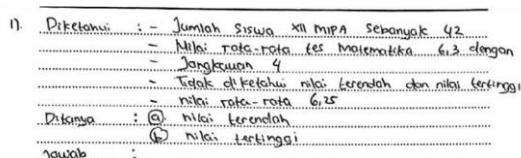 1). Diketahui : - Jumlah siswa XII MIPA sebanyak 42
- Nilai rata-rata tes Matematika 6,3 dengan
- Jangkauan 4
- Tidak diketahui nilai terendah dan nilai tertinggi
- nilai rata-rata 6,25
Ditanya : a nilai terendah
b nilai tertinggi
Jawab :